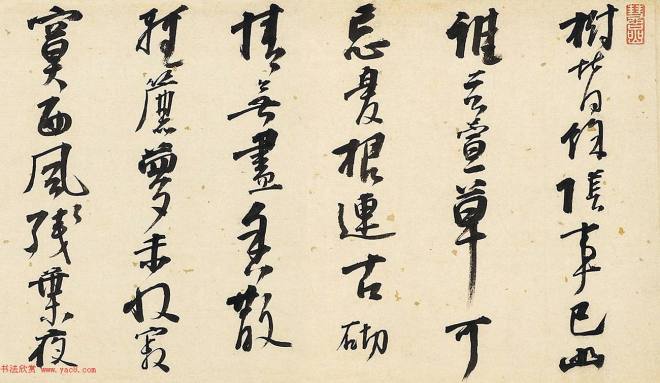 樹事已幽
誰言萱草可
忘憂根連古砌
情無盡香散
疎簾夢未收寂
寞西風殘葉夜
书法欣赏 www.yac8.com